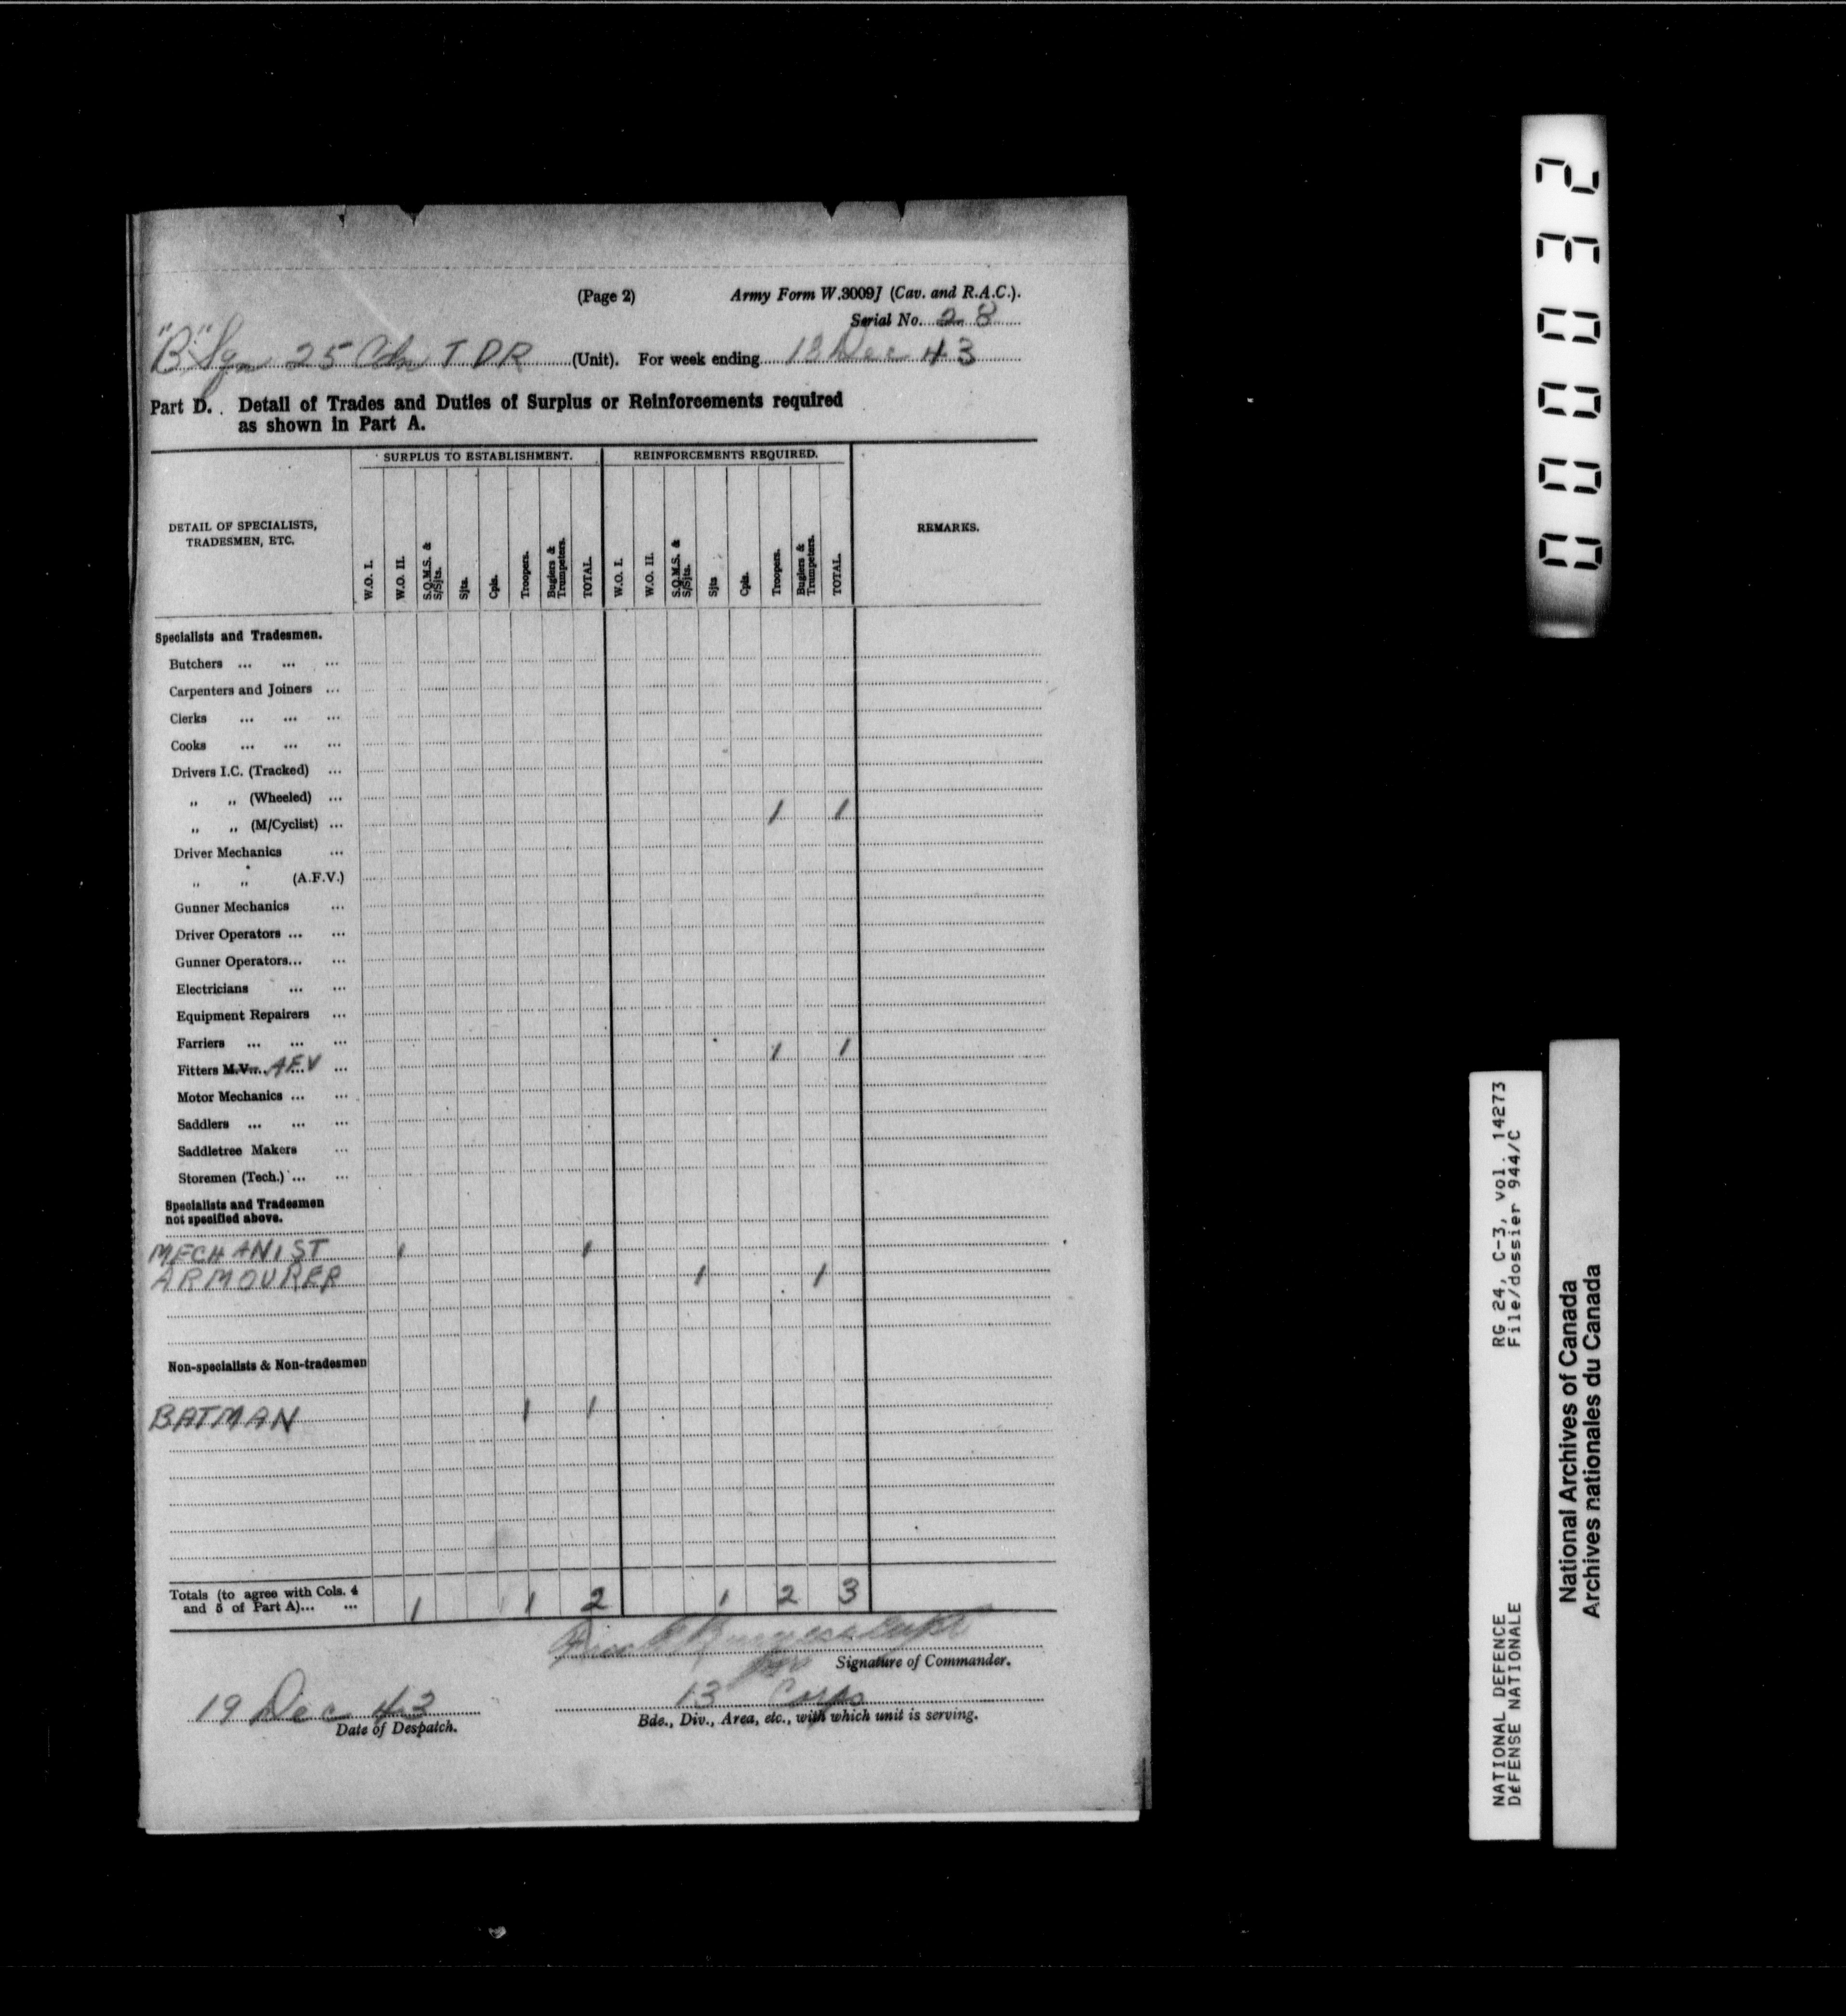 (Page 2) Army Form W.3009J (Cav. and R.A.C.).
Serial No. 28
"B" Sqn 25 Cdn T D R (Unit). For week ending 18 Dec 43
Part D. Detail of Trades and Duties of Surplus or Reinforcements required
as shown in Part A.
DETAIL OF SPECIALISTS, TRADESMEN, ETC. SURPLUS TO ESTABLISHMENT. REINFORCEMENTS REQUIRED. REMARKS.
W.O. I. W.O. II. S.Q.M.S. & S/Sjts. Sjts. Cpls. Troopers. Buglers & Trumpeters. TOTAL. W.O. I. W.O. II. S.Q.M.S. & S/Sjts. Sjts Cpls. Troopers. Buglers & Trumpeters. TOTAL.
Specialists and Tradesmen.
Butchers ... ... ...
Carpenters and Joiners ...
Clerks ... ... ...
Cooks ... ... ...
Drivers I.C. (Tracked) ...
„ „ (Wheeled) ...
„ „ (M/Cyclist) ... 1 1
Driver Mechanics ...
„ „ (A.F.V.)
Gunner Mechanics ...
Driver Operators ... ...
Gunner Operators... ...
Electricians ... ...
Equipment Repairers ...
Farriers ... ... ... 1 1
Fitters M.V.... AFV ...
Motor Mechanics ... ...
Saddlers ... ... ...
Saddletree Makers ...
Storemen (Tech.) ... ...
Specialists and Tradesmen
not specified above.
MECHANIST 1 1
ARMOURER 1 1
Non-specialists & Non-tradesmen
BATMAN 1 1
Totals (to agree with Cols. 4
and 5 of Part A)... ... 1 1 2 1 2 3
Capt
Signature of Commander.
19 Dec 43 13 Corps
Date of Despatch. Bde., Div., Area, etc., with which unit is serving.
000032
RG 24, C-3, vol. 14273
File/dossier 944/C
NATIONAL DEFENCE
DéFENSE NATIONALE
National Archives of Canada
Archives nationales du Canada